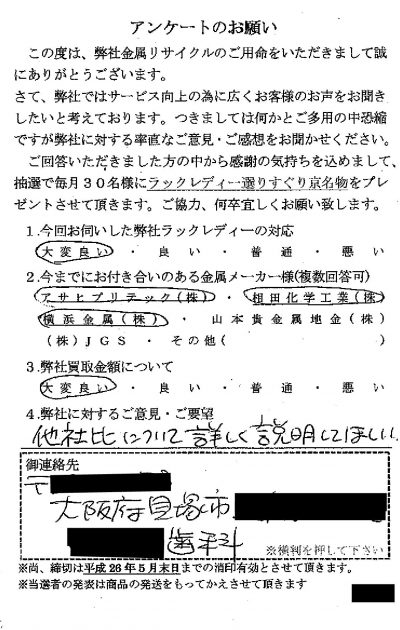 アンケートのお願い
この度は、弊社金属リサイクルのご用命をいただきまして誠
にありがとうございます。
さて、弊社ではサービス向上の為に広くお客様のお声をお聞き
したいと考えております。つきましては何かとご多用の中恐縮
ですが弊社に対する率直なご意見・ご感想をお聞かせください。
ご回答いただきました方の中から感謝の気持ちを込めまして、
抽選で毎月30名様にラックレディー選りすぐり京名物をプレ
ゼントさせて頂きます。ご協力、何卒宜しくお願い致します。
1.今回お伺いした弊社ラックレディーの対応
大変良い ・ 良い ・ 普通 ・ 悪い
2.今までにお付き合いのある金属メーカー様(複数回答可)
アサヒプリテック(株) ・ 相田化学工業(株)
横浜金属(株) ・ 山本貴金属地金(株)
(株)JGS ・ その他( )
3.弊社買取金額について
大変良い ・ 良い ・ 普通 ・ 悪い
4.弊社に対するご意見・ご要望
他社比について詳しく説明してほしい
御連絡先
〒
大阪府貝塚市
歯科
※横判を押して下さい
※尚、締切は平成26年5月末日までの消印有効とさせて頂きます。
※当選者の発表は商品の発送をもってかえさせて頂きます